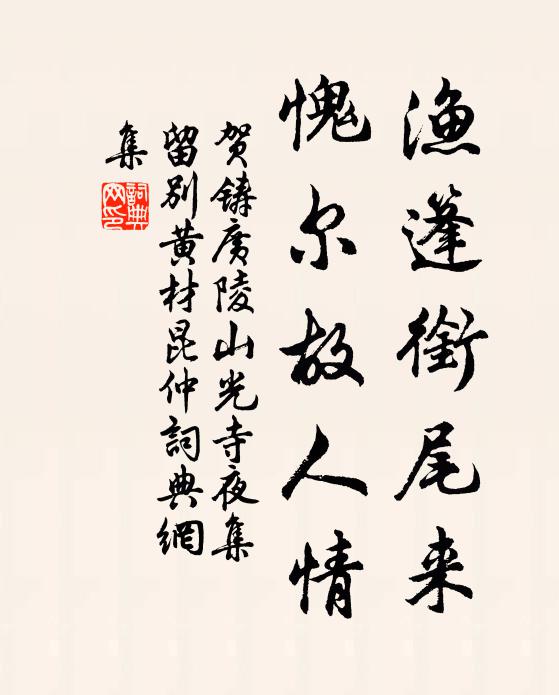 渔蓬衔尾来
愧尔故人情
贺铸广陵山光寺夜集
留别黄材昆仲詞典網
集
詞典网印